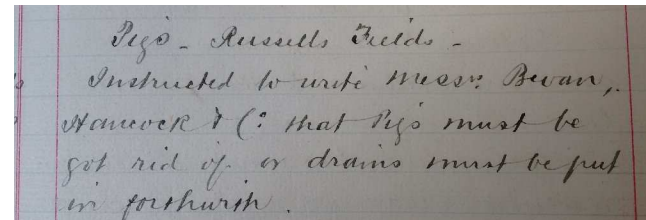 Pigs - Russells Fields -
Instructed to write Messrs. Bevan,
Hancock & Co: that Pigs must be
got rid of or drains must be put
in forthwith.